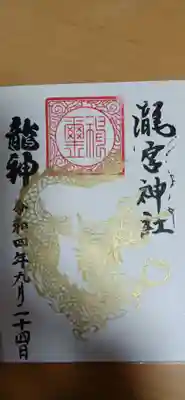 瀧宮神社
龍神
令和四年九月二十四日